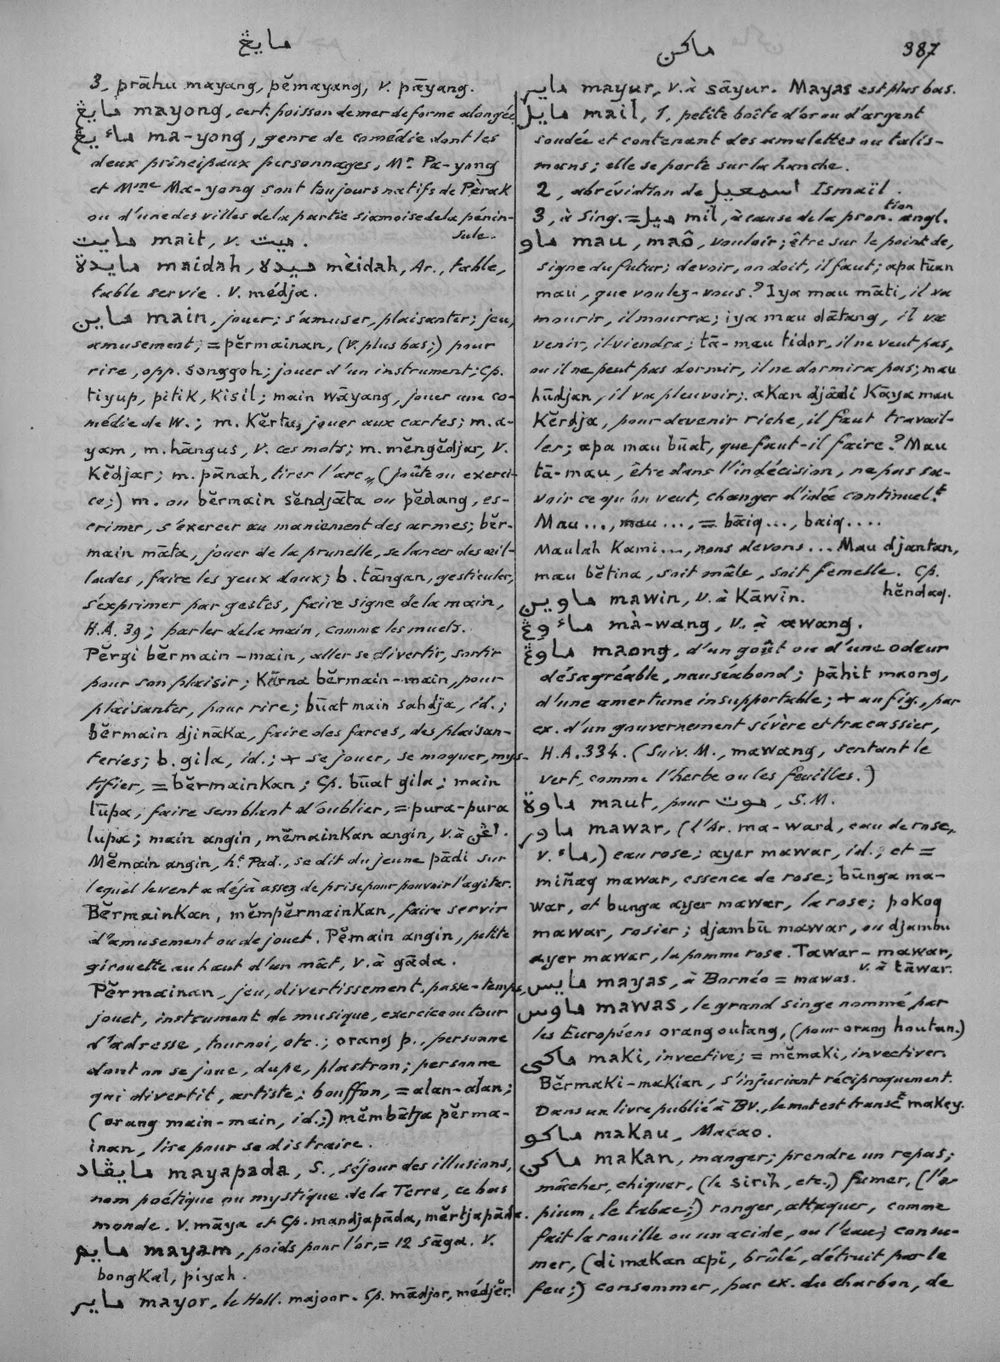 مايڠ
ماكن
387
3, prāhu mayang, pĕmayang, v. pāyang.
مايڠ mayong, cert. poisson de mer de forme alongée
ماءيڠ ma-yong, genre de comédie dont les
deux principaux personnages, Mr Pa-yong
et Mme Ma-yong sont toujours natifs de Pèrak
ou d'une des villes de la partie siamoise de la pénin-
sule.
مايت mait, v. ميت.
مايدة maidah, ميدة mèidah, Ar., table,
table servie. V. médja.
ماين main, jouer; s'amuser, plaisanter; jeu,
amusement; = pĕrmainan, (v. plus bas;) pour
rire, opp. songgoh; jouer d'un instrument; Cp.
tiyup, pitik, kisil; main wāyang, jouer une co-
médie de W.; m. Kĕrtus, jouer aux cartes; m. a-
yam, m. hāngus, v. ces mots; m. mĕngĕdjar, v.
Kĕdjar; m. pānah, tirer l'arc, (joûte ou exerci-
ce;) m. ou bĕrmain sĕndjāta ou pĕdang, es-
crimer, s'exercer au maniement des armes; bĕr-
main māta, jouer de la prunelle, se lancer des œil-
lades, faire les yeux doux; b. tāngan, gesticuler,
s'exprimer par gestes, faire signe de la main,
H.A. 39; parler de la main, comme les muets.
Pĕrgi bĕrmain-main, aller se divertir, sortir
pour son plaisir; Kārna bĕrmain-main, pour
plaisanter, pour rire; būat main sahdja, id.;
bĕrmain djināka, faire des farces, des plaisan-
teries; b. gila, id.; + se jouer, se moquer, mys-
tifier, = bĕrmainkan; Cp. būat gila; main
lūpa, faire semblant d'oublier, = pura-pura
lupa; main angin, mĕmainkan angin, v. à اڠن.
Mĕmain angin, ht Pad., se dit du jeune pādi sur
lequel le vent a déjà assez de prise pour pouvoir l'agiter.
Bĕrmainkan, mĕmpĕrmainkan, faire servir
d'amusement ou de jouet. Pĕmain angin, petite
girouette au haut d'un mât, v. à gāda.
Pĕrmainan, jeu, divertissement, passe-temps,
jouet, instrument de musique, exercice ou tour
d'adresse, tournoi, etc.; orang p., personne
dont on se joue, dupe, plastron; personne
qui divertit, artiste; bouffon, = alan-alan;
(orang main-main, id.;) mĕmbātja pĕrma-
inan, lire pour se distraire.
مايڤاد mayapada, S., séjour des illusions,
nom poétique ou mystique de la Terre, ce bas
monde. V. māya et Cp. mandjapāda, mĕrtjapāda.
مايم mayam, poids pour l'or, = 12 sāga. V.
bongkal, piyah.
ماير mayor, le Holl. majoor. Cp. mādjor, médjĕr.
ماير mayur, v. à sāyur. Mayas est plus bas.
مايل mail, 1, petite boîte d'or ou d'argent
soudée et contenant des amulettes ou talis-
mans; elle se porte sur la hanche.
2, abréviation de اسمعيل Ismaïl.
3, à Sing. = ميل mil, à cause de la pron.tion angl.
ماو mau, maô, vouloir; être sur le point de,
signe du futur; devoir, on doit, il faut; apa tūan
mau, que voulez-vous? Iya mau māti, il va
mourir, il mourra; iya mau dātang, il va
venir, il viendra; tā-mau tidor, il ne veut pas,
ou il ne peut pas dormir, il ne dormira pas; mau
hūdjan, il va pleuvoir; akan djādi Kāya mau
Kĕrdja, pour devenir riche, il faut travail-
ler; apa mau būat, que faut-il faire? Mau
tā-mau, être dans l'indécision, ne pas sa-
voir ce qu'on veut, changer d'idée continuel.t
Mau..., mau..., = bāiq..., baiq....
Maulah Kami..., nous devons... Mau djantan,
mau bĕtina, soit mâle, soit femelle. Cp.
hĕndaq.
ماوين mawin, v. à Kāwīn.
ماءوڠ mà-wang, v. à awang.
ماوڠ maong, d'un goût ou d'une odeur
désagréable, nauséabond; pāhit maong,
d'une amertume insupportable; + au fig., par
ex. d'un gouvernement sévère et tracassier,
H.A. 334. (Suiv. M., mawang, sentant le
vert, comme l'herbe ou les feuilles.)
ماوة maut, pour موت, S.M.
ماور mawar, (l'Ar. ma-ward, eau de rose,
v. ماء,) eau rose; ayer mawar, id.; et =
miñaq mawar, essence de rose; būnga ma-
war, et bunga ayer mawar, la rose; pokoq
mawar, rosier; djambū mawar, ou djambu
ayer mawar, la pomme rose. Tawar-mawar,
v. à tāwar.
مايس mayas, à Bornéo = mawas.
ماوس mawas, le grand singe nommé par
les Européens orang outang, (pour orang houtan.)
ماكي maki, invective; = mĕmaki, invectiver.
Bĕrmaki-makian, s'injuriant réciproquement.
Dans un livre publié à BV., le mot est transct makey.
ماكو makau, Macao.
ماكن makan, manger; prendre un repas;
mâcher, chiquer, (le sirih, etc.,) fumer, (l'o-
pium, le tabac;) ronger, attaquer, comme
fait la rouille ou un acide, ou l'eau; consu-
mer, (di makan api, brûlé, détruit par le
feu;) consommer, par ex. du charbon, de